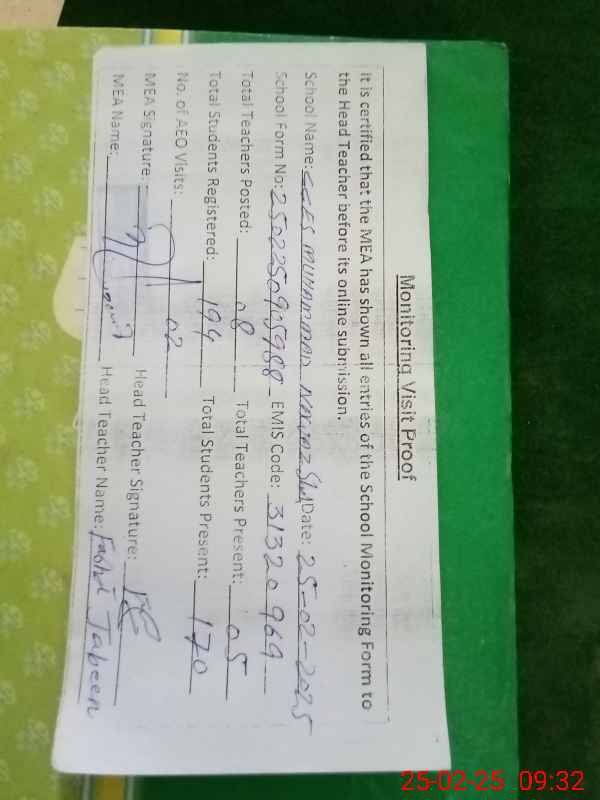 Monitoring Visit Proof
It is certified that the MEA has shown all entries of the School Monitoring Form to
the Head Teacher before its online submission.
School Name: GGES MUHAMMAD NAWAZ Date: 25-02-2025
School Form No: 2502250905988 EMIS Code: 31320969
Total Teachers Posted: 08 Total Teachers Present: 05
Total Students Registered: 194 Total Students Present: 170
No. of AEO Visits: 02
MEA Signature: Head Teacher Signature:
MEA Name: Head Teacher Name: Jabeen
25-02-25 09:32